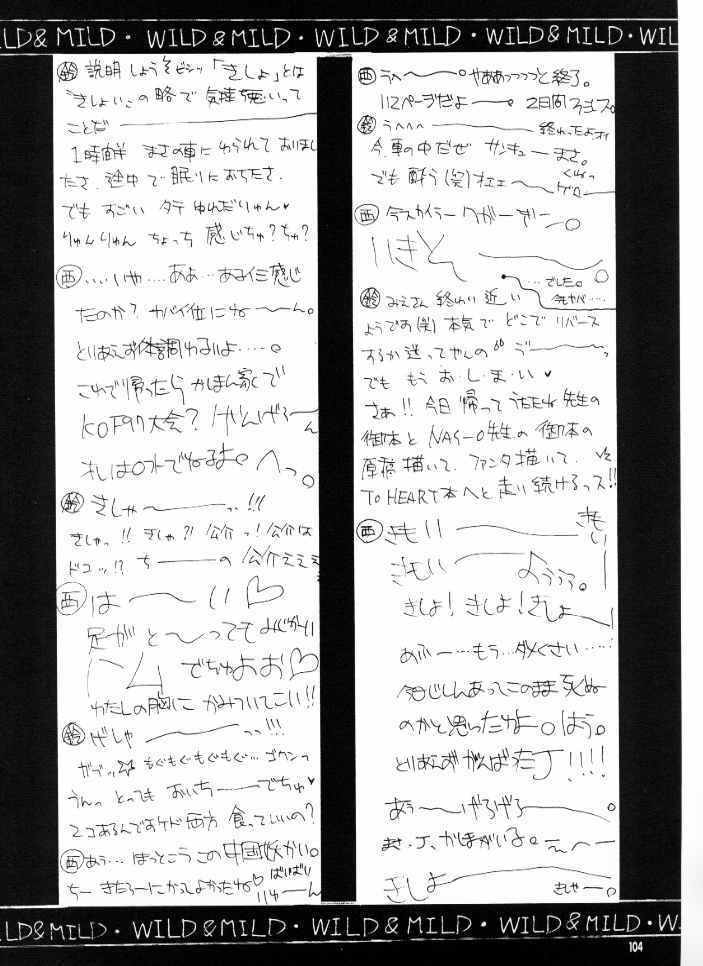 WILD & MILD・WILD & MILD・WILD & MILD・WILD & MILD・WIL
鈴 説明しようビシッ「きしょ」とは
"きしょい"の略で気持悪いって
ことだ
1時間半 まさの車にゆられておりまし
たさ、途中で眠りにおちたさ。
でもすごいタテゆれだりゅん♥
りゅんりゅん ちょっち感じちゅ?ちゅ?
西 ‥‥いや‥‥あぁ‥あるイミ感じ
たのか? ヤバイ位にね〜〜ん。
とりあえず体調わるいよ‥‥。
これで帰ったらかほん家で
KOF97大会?
オレは0卜でねるよ。へっ。
鈴 きしゃ〜〜〜っ!!!
きしゃっ!! きしゃ?! 公介っ!公介は
ドコッ!? ち―――の公介ええ
西 は〜〜い♡
足がと〜ってもみじかい
ハム でちゅよお♡
わたしの胸にかみついてこい!!
鈴 げしゃ〜〜〜っっ!!!
ガブッ もぐもぐもぐもぐ‥‥ゴクンっ
うんっとってもおいちーーでちゅ♥
2コあるんですケド両方食っていいの?
西 あぅ‥‥ほっとこうこの中国妖かい。
ちー きたろーにかてしよかったね♡ ばいばい
西 うへ〜〜。やああっっっっと終了。
112ページだよー。2日間
鈴 うへへへ―――終わったよオイ
今、車の中だぜ サンキューまさ。
でも酔う(笑)オエェ〜〜
西 今スカイラークがーずー○
‥‥でした。
鈴 みえさん 終わり近い
ようです(笑) 本気でどこでリバース
するか迷ってやんの
でももうお・し・ま・い♥
さぁ!! 今日帰ってうたたね先生の
御本とNAS-O先生の御本の
原稿描いて、ファンタ描いて、
TO HEART本へと走り続けるっス!!
西 きもい―――きもい
きもい―――ようううう。
きしょ!きしょ!きしょー
あふー‥‥もう‥ダメくさい‥‥
今日じしんあってこのまま死ぬ
のかと思ったわよ。はう。
とりあえずがんば丁!!!!
あぅ〜〜げろげろ―――。
きしょ―――きしゃー。
WILD & MILD・WILD & MILD・WILD & MILD・WILD & MILD・W
104